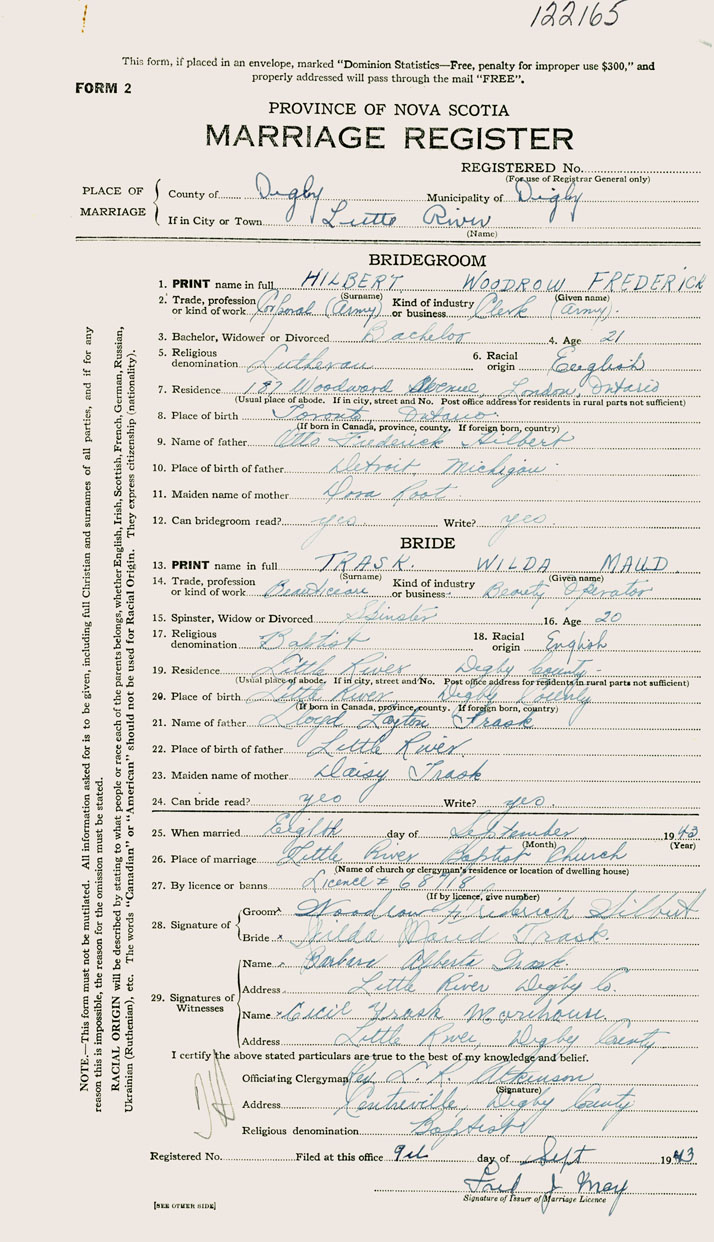 122165
This form, if placed in an envelope, marked "Dominion Statistics—Free, penalty for improper use $300," and
properly addressed will pass through the mail "FREE".
FORM 2
PROVINCE OF NOVA SCOTIA
MARRIAGE REGISTER
REGISTERED No.
(For use of Registrar General only)
PLACE OF MARRIAGE
County of Digby Municipality of Digby
If in City or Town Little River
(Name)
BRIDEGROOM
1. PRINT name in full HILBERT WOODROW FREDERICK
(Surname) (Given name)
2. Trade, profession or kind of work Corporal (Army) Kind of industry or business Clerk (Army).
3. Bachelor, Widower or Divorced Bachelor 4. Age 21
5. Religious denomination Lutheran 6. Racial origin English
7. Residence 187 Woodward Avenue, London, Ontario
(Usual place of abode. If in city, street and No. Post office address for residents in rural parts not sufficient)
8. Place of birth Toronto, Ontario.
(If born in Canada, province, county. If foreign born, country)
9. Name of father Otto Frederick Hilbert
10. Place of birth of father Detroit, Michigan.
11. Maiden name of mother Dora Root.
12. Can bridegroom read? yes. Write? yes.
BRIDE
13. PRINT name in full TRASK. WILDA MAUD
(Surname) (Given name)
14. Trade, profession or kind of work Beautician Kind of industry or business Beauty Operator
15. Spinster, Widow or Divorced Spinster 16. Age 20
17. Religious denomination Baptist 18. Racial origin English
19. Residence Little River Digby County.
(Usual place of abode. If in city, street and No. Post office address for residents in rural parts not sufficient)
20. Place of birth Little River Digby County
(If born in Canada, province, county. If foreign born, country)
21. Name of father Lloyd Layton Trask
22. Place of birth of father Little River.
23. Maiden name of mother Daisy Trask
24. Can bride read? yes Write? yes.
25. When married Eighth day of September 1943
(Month) (Year)
26. Place of marriage Little River Baptist Church
(Name of church or clergyman's residence or location of dwelling house)
27. By licence or banns Licence # 68718
(If by licence, give number)
28. Signature of
Groom Woodrow Frederick Hilbert
Bride Wilda Maud Trask.
29. Signatures of Witnesses
Name Barbara Alberta Trask.
Address Little River Digby Co.
Name Cecil Trask Morehouse.
Address Little River, Digby County
I certify the above stated particulars are true to the best of my knowledge and belief.
Officiating Clergyman Rev. L. R. Atkinson
(Signature)
Address Centreville, Digby County
Religious denomination Baptist
Registered No. Filed at this office 9th day of Sept 1943
Fred J May
Signature of Issuer of Marriage Licence
[SEE OTHER SIDE]
NOTE.—This form must not be mutilated. All information asked for is to be given, including full Christian and surnames of all parties, and if for any
reason this is impossible, the reason for the omission must be stated.
RACIAL ORIGIN will be described by stating to what people or race each of the parents belongs, whether English, Irish, Scottish, French, German, Russian,
Ukrainian (Ruthenian), etc. The words "Canadian" or "American" should not be used for Racial Origin. They express citizenship (nationality).